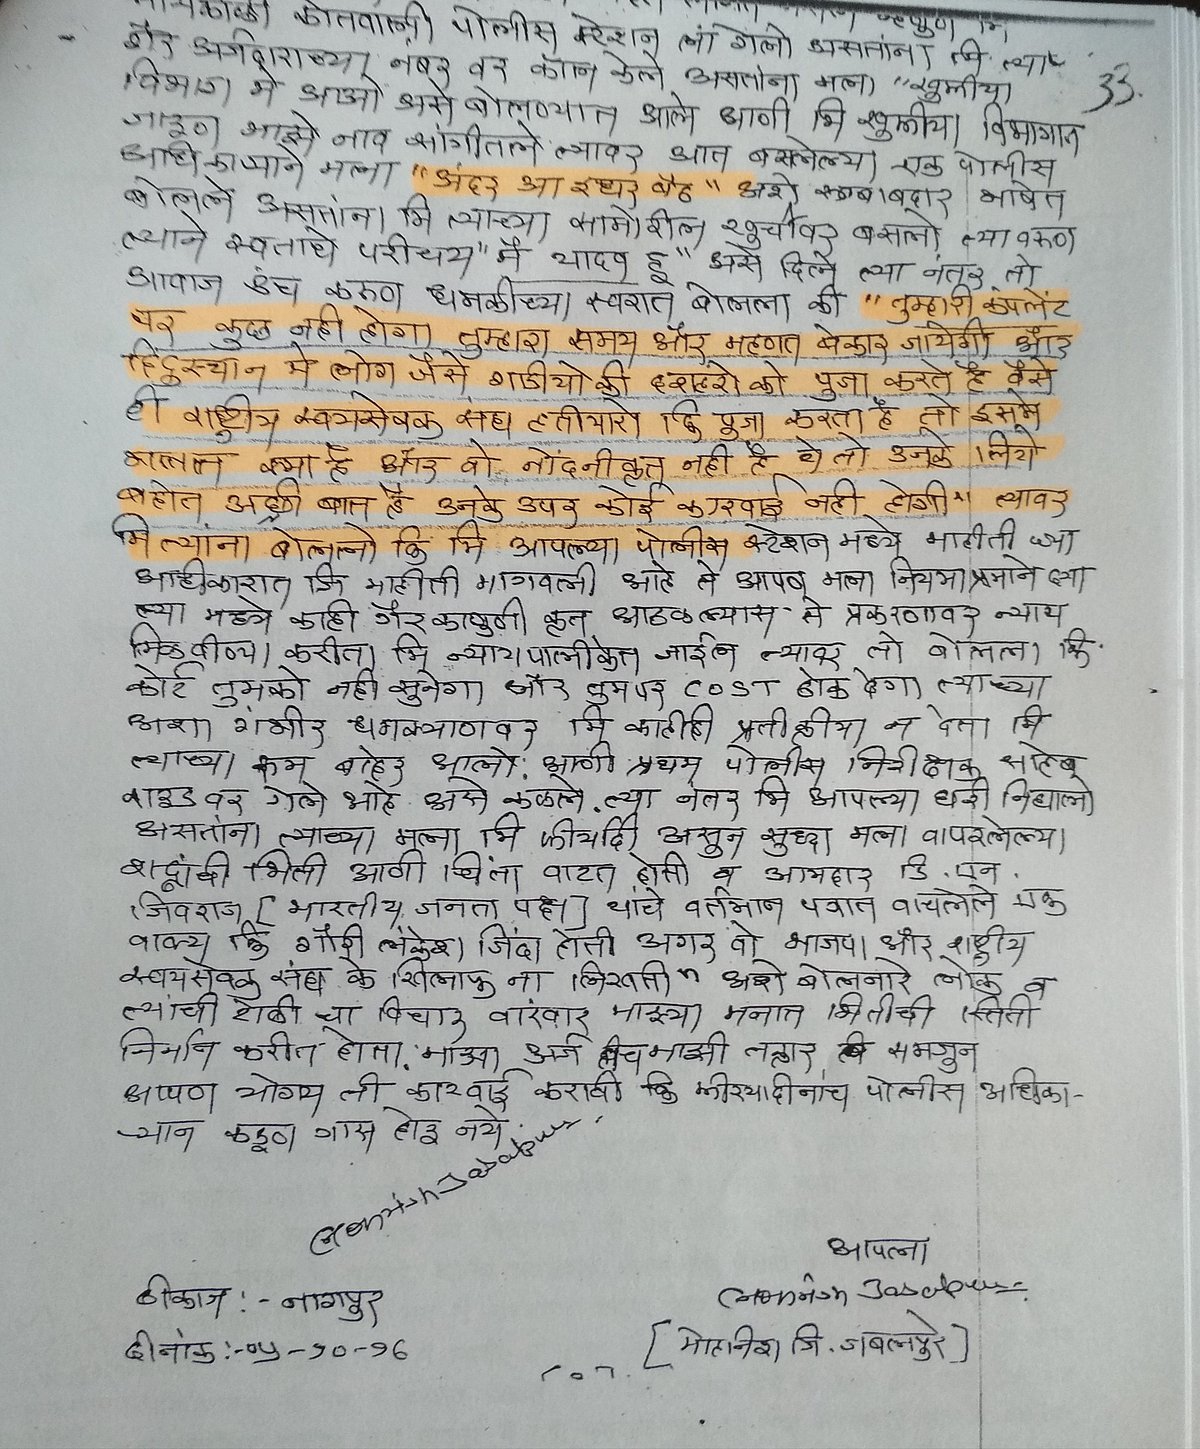 कोतवाली पोलीस स्टेशन ला गेलो असतांना मि त्या
गैर अर्जदाराच्या नंबर वर कॉल केले असतांना मला "खुफीया
33.
विभाग मे आओ असे बोलण्यात आले आणी मि खुफीया विभागात
जाऊन माझे नाव सांगीतले त्यावर आत बसलेल्या एक पोलीस
अधिकाऱ्याने मला "अंदर आ इधर बैठ" अशे रूबाबदार भाषेत
बोलले असतांना मि त्याच्या सामोरील खुर्चीवर बसलो त्या
त्याने स्वताचे परीचय "मै यादव हू" असे दिले त्या नंतर तो
आवाज उंच करुण धमकीच्या स्वरात बोलला की "तुम्हारी कंपलेंट
पर कुछ नही होगा तुम्हारा समय और महणत बेकार जायेगी और
हिंदुस्थान मे लोग जैसे गाडीयो की दशहरे को पुजा करते है वैसे
ही राष्ट्रीय स्वयसेवक संघ हतीयारो कि पुजा करता है तो इसमे
गलत क्या है और वो नोंदनीकृत नही है ये तो उनके लिये
बहोत अच्छी बात है उनके उपर कोई कारवाई नही होगी" त्यावर
मि त्यांना बोललो कि मि आपल्या पोलीस स्टेशन मध्ये माहीती च्या
आधीकारात जि माहीती मागवली आहे ते आपण मला नियमाप्रमाने द्या
त्या मध्ये काही गैरकाणुनी कृत आढळल्यास ते प्रकरणावर न्याय
मिळवीण्या करीता मि न्यायपालीकेत जाईल त्यावर तो बोलला कि
कोर्ट तुमको नही सुनेगा और तुमपर COST ठोक देगा त्याच्या
अशा गंभीर धमक्याणवर मि काहीही प्रतीक्रीया न देता मि
त्याच्या रूम बाहेर आलो. आणी प्रथम पोलीस निरीक्षक साहेब
राउंड वर गेले आहे असे कळले. त्या नंतर मि आपल्या घरी निघालो
असतांना त्याच्या मला मि फीर्यादि असुन सुध्दा मला वापरलेल्या
शब्दांची भिती आणी चिंता वाटत होती व आमदार डि. एन.
जिवराज [भारतीय जनता पक्ष] यांचे वर्तमान पत्रात वाचलेले एक
वाक्य कि गौरी लंकेश जिंदा होती अगर वो भाजपा और राष्ट्रीय
स्वयसेवक संघ के खिलाफ ना लिखती" अशे बोलनारे लोक व
त्यांची टोळी चा विचार वारंवार माझ्या मनात भितीची स्तिती
निर्माण करीत होता. माझा अर्ज हीच माझी तक्रार समजुन
आपण योग्य ती कारवाई करावी कि फीरयादीनांच पोलीस अधिका-
-यान कडूण त्रास होइ नये.
आपला
ठीकाण :- नागपुर
[मोहनिश जि. जबलपुरे]
दीनांक :- ०५-१०-१८